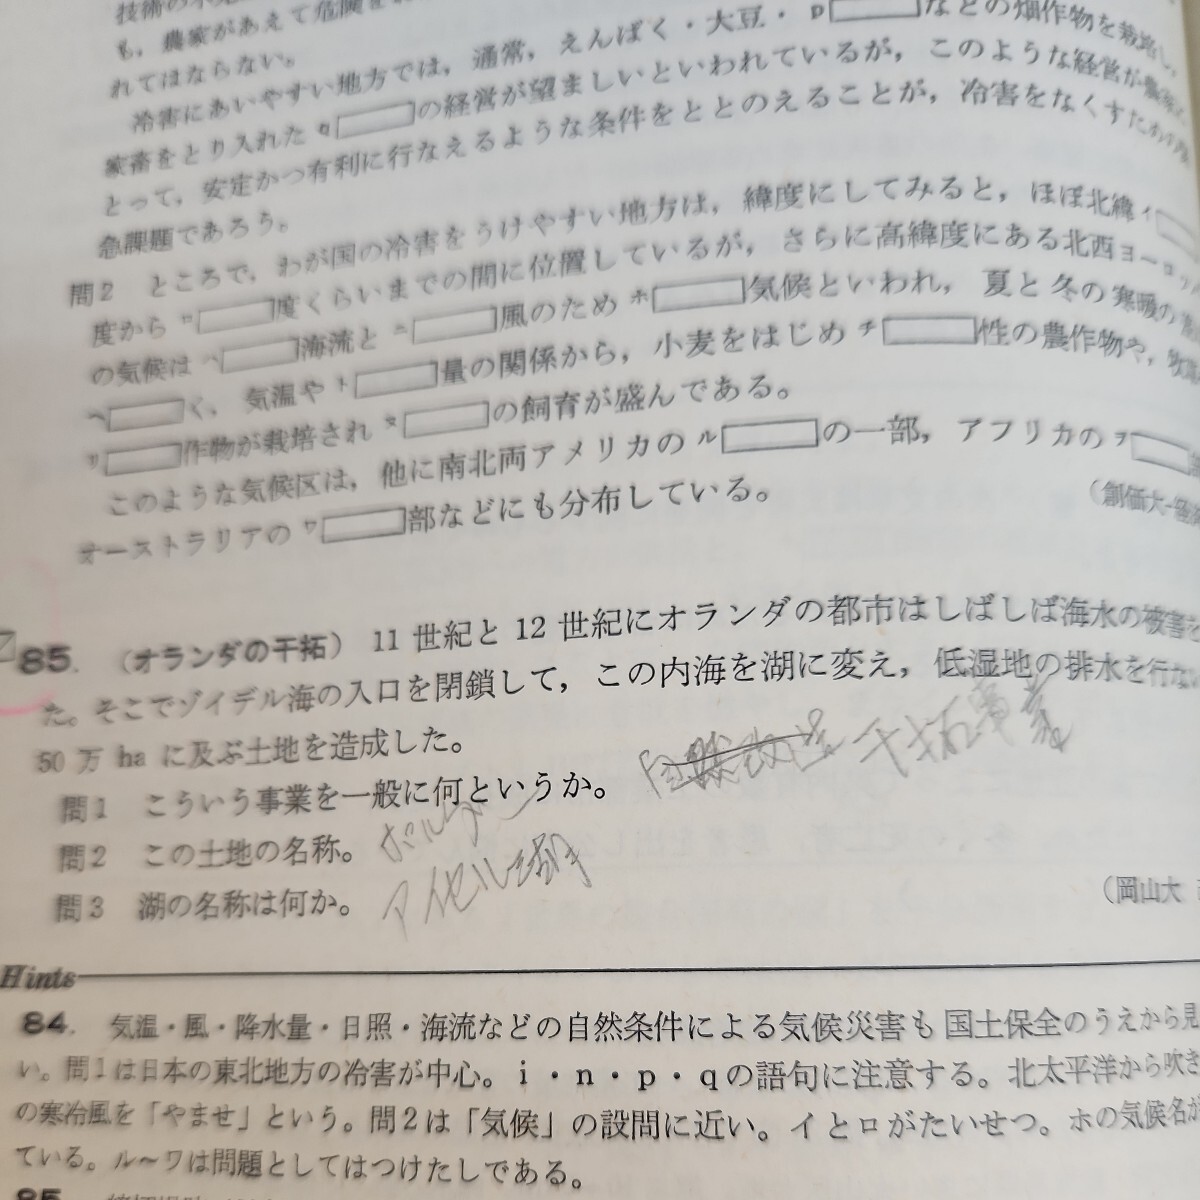 も，農家があえて危険を
れてはならない。
冷害にあいやすい地方では，通常，えんばく・大豆・ p などの畑作物を栽培し，
家畜をとり入れた q の経営が望ましいといわれているが，このような経営が農家に
とって，安定かつ有利に行なえるような条件をととのえることが，冷害をなくすための
急課題であろう。
問2 ところで，わが国の冷害をうけやすい地方は，緯度にしてみると，ほぼ北緯 イ
度から ロ 度くらいまでの間に位置しているが，さらに高緯度にある北西ヨーロッパ
の気候は ハ 海流と ニ 風のため ホ 気候といわれ，夏と冬の寒暖の
ヘ く，気温や ト 量の関係から，小麦をはじめ チ 性の農作物や，牧
リ 作物が栽培され ヌ の飼育が盛んである。
このような気候区は，他に南北両アメリカの ル の一部，アフリカの ヲ
オーストラリアの ワ 部などにも分布している。
(創価大-経済
85. (オランダの干拓) 11世紀と12世紀にオランダの都市はしばしば海水の被害を
た。そこでゾイデル海の入口を閉鎖して，この内海を湖に変え，低湿地の排水を行ない
50万 ha に及ぶ土地を造成した。
問1 こういう事業を一般に何というか。 自然改造 干拓事業
問2 この土地の名称。 ポルダー
問3 湖の名称は何か。 アイセル湖
(岡山大
Hints
84. 気温・風・降水量・日照・海流などの自然条件による気候災害も国土保全のうえから見
い。問1は日本の東北地方の冷害が中心。i・n・p・qの語句に注意する。北太平洋から吹き
の寒冷風を「やませ」という。問2は「気候」の設問に近い。イとロがたいせつ。ホの気候名が
ている。ル～ワは問題としてはつけたしである。
85.